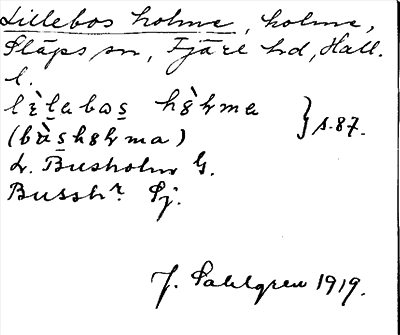 Lillebos holme, holme,
Släps sn, Fjäre hd, Hall.
l.
lìlabas hòlma } s. 87.
(bùsholma)
L. Busholm G.
Bussh:r Sj.
J. Sahlgren 1919.